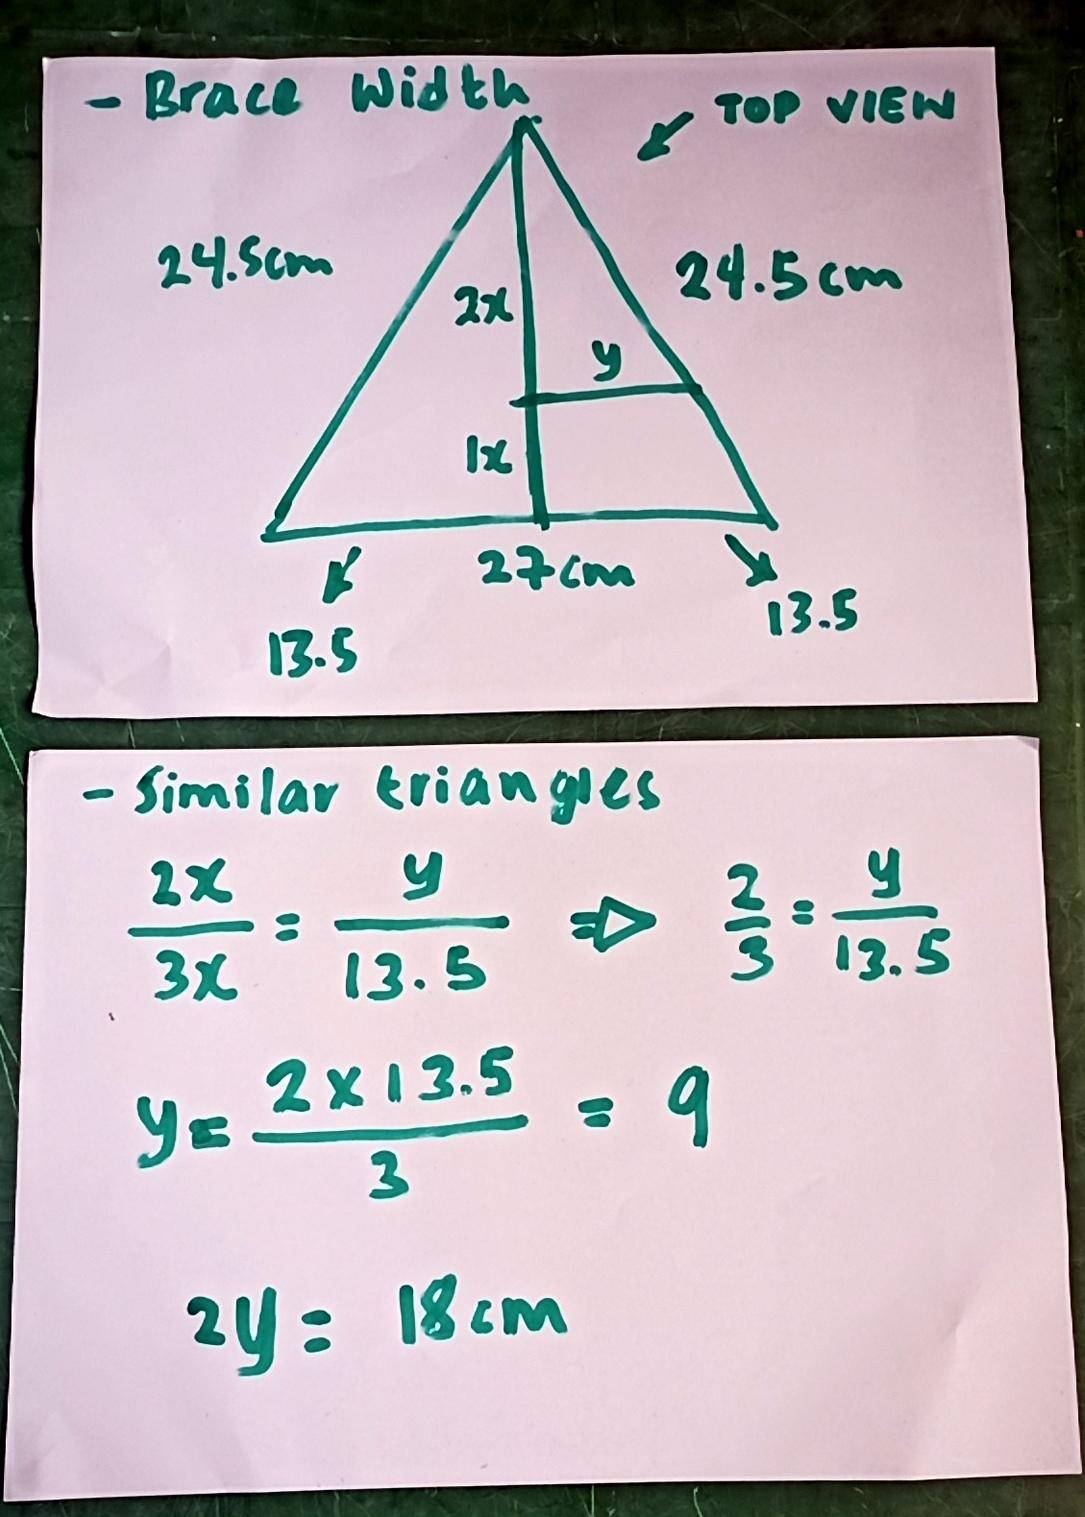 - Brace Width
TOP VIEW
24.5cm
24.5cm
2x
y
1x
27cm
13.5
13.5
- Similar triangles
2x/3x = y/13.5 ⇒ 2/3 = y/13.5
y = 2x13.5/3 = 9
2y = 18cm